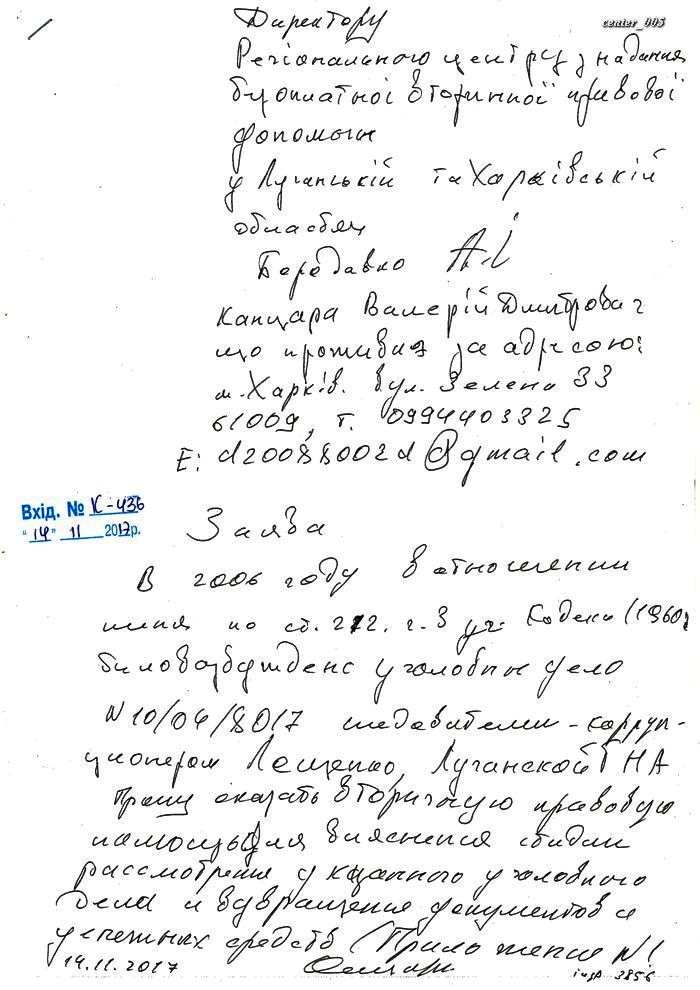 center_005
Директору
Регіонального центру з надання
безоплатної вторинної правової
допомоги
у Луганській та Харківській
областях
Бородавко А.І
Капцара Валерій Дмитрович
що проживає за адресою:
м. Харків. вул. Зелена 33
61009, т. 0994403325
E: d20088002d@gmail.com
Вхід. № К-436
"14" 11 2017р.
Заява
В 2006 году в отношении
меня по ст. 212. ч. 3 уг. Кодекса (1960)
было возбуждено уголовные дело
N 10/04/8017 следователем-корруп-
ционером Лещенко, Луганской ГНА
Прошу оказать вторичную правовую
помощь для выяснения стадии
рассмотрения указанного уголовного
дела и возвращение документов и
денежных средств (Приложение N1
14.11.2017